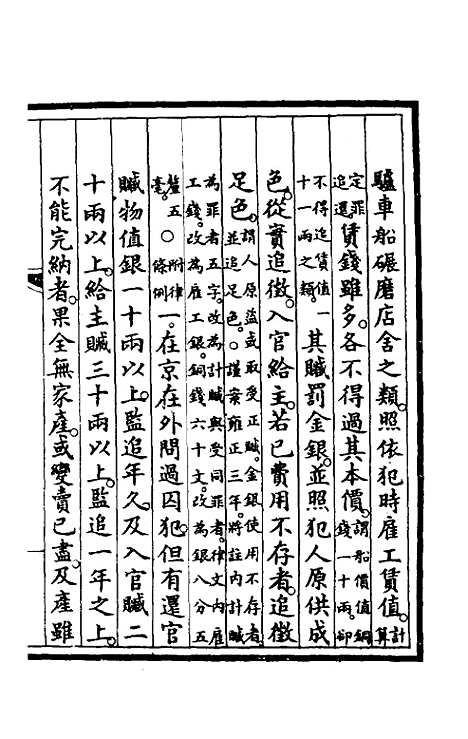 驢車船碾磨店舍之類。照依犯時雇工賃值。計算
定罪追還。賃錢雖多。各不得過其本價。謂船價值銅錢一十兩。卻
不得追賃值一十一兩之類。一其贓罰金銀。並照犯人原供成
色。從實追徵。入官給主。若已費用不存者。追徵
足色。謂人原盜或取受正贓。金銀使用不存者。並追足色。○謹案雍正三年。將註內計贓
為罪者五字。改為計贓與受同罪者。律文內雇工錢。改為雇工銀。銅錢六十文。改為銀八分五
釐五毫。○附律條例一。在京在外問過囚犯。但有還官
贓物值銀一十兩以上。監追年久。及入官贓二
十兩以上。給主贓三十兩以上。監追一年之上。
不能完納者。果全無家產。或變賣已盡。及產雖